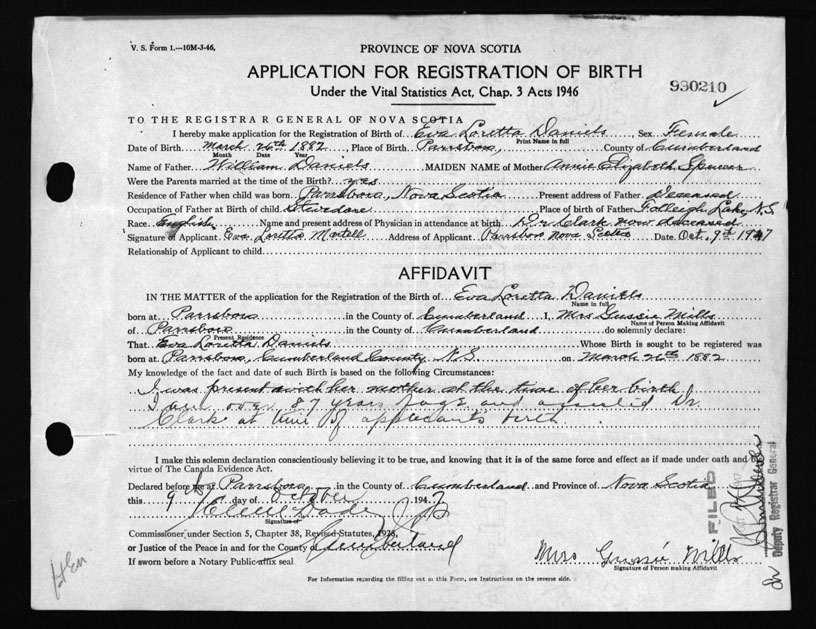 V. S. Form 1.—10M-3-46,
PROVINCE OF NOVA SCOTIA
APPLICATION FOR REGISTRATION OF BIRTH
Under the Vital Statistics Act, Chap. 3 Acts 1946
930210
TO THE REGISTRAR GENERAL OF NOVA SCOTIA
I hereby make application for the Registration of Birth of Eva Loretta Daniels, Sex Female
Print Name in full
Date of Birth March 26th 1882, Place of Birth Parrsboro, County of Cumberland
Month Date Year
Name of Father William Daniels MAIDEN NAME of Mother Annie Elizabeth Spencer
Were the Parents married at the time of the Birth? yes
Residence of Father when child was born Parrsboro, Nova Scotia Present address of Father Deceased
Occupation of Father at Birth of child Stevedore Place of birth of Father Folleigh Lake, N.S.
Race English Name and present address of Physician in attendance at birth Dr Clark now deceased
Signature of Applicant Eva Loretta Martell Address of Applicant Parrsboro Nova Scotia Date Oct. 9th 1947
Relationship of Applicant to child
AFFIDAVIT
IN THE MATTER of the application for the Registration of the Birth of Eva Loretta Daniels
Name in full
born at Parrsboro in the County of Cumberland I, Mrs Gussie Mills
Name of Person Making Affidavit
of Parrsboro in the County of Cumberland do solemnly declare:
Present Residence
That Eva Loretta Daniels Whose Birth is sought to be registered was
born at Parrsboro, Cumberland County, N.S. on March 26th 1882
My knowledge of the fact and date of such Birth is based on the following Circumstances:
I was present with her mother at the time of her birth.
I am over 87 years of age and assisted Dr.
Clark at time of applicant's birth.
I make this solemn declaration conscientiously believing it to be true, and knowing that it is of the same force and effect as if made under oath and by
virtue of The Canada Evidence Act.
Declared before me at Parrsboro in the County of Cumberland and Province of Nova Scotia
this 9th day of October 1947
Signature of
Commissioner under Section 5, Chapter 38, Revised Statutes, 1923,
or Justice of the Peace in and for the County of Cumberland
If sworn before a Notary Public affix seal
Mrs Gussie Mills
Signature of Person making Affidavit
For Information regarding the filling out of this Form, see Instructions on the reverse side.
FILED
Deputy Registrar General